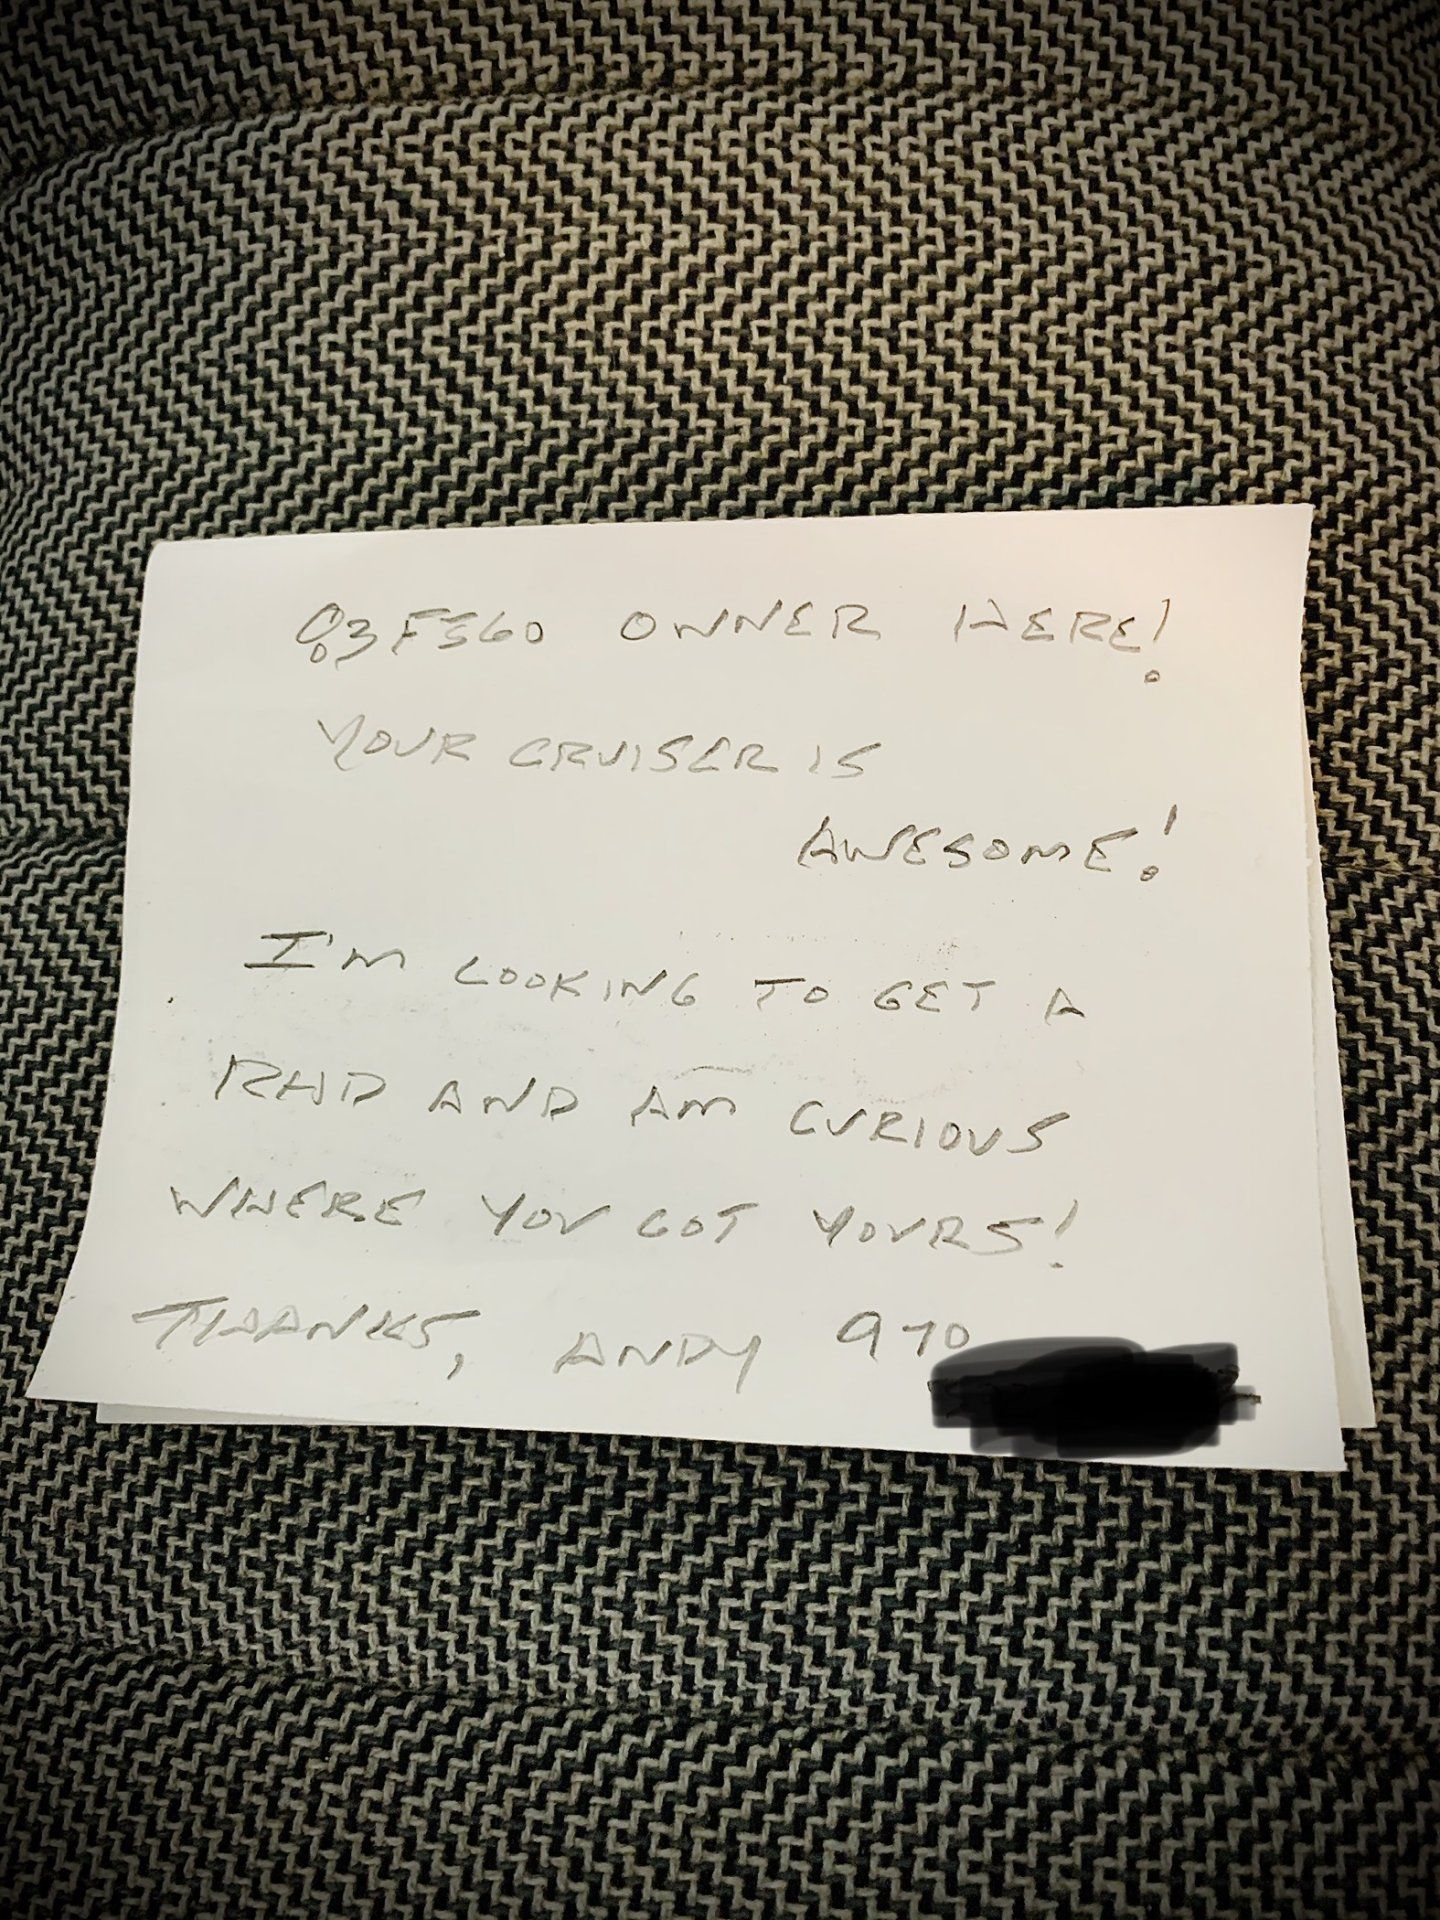 83 FJ60 OWNER HERE!
YOUR CRUISER IS
AWESOME!
I'M LOOKING TO GET A
RHD AND AM CURIOUS
WHERE YOU GOT YOURS!
THANKS, ANDY 970